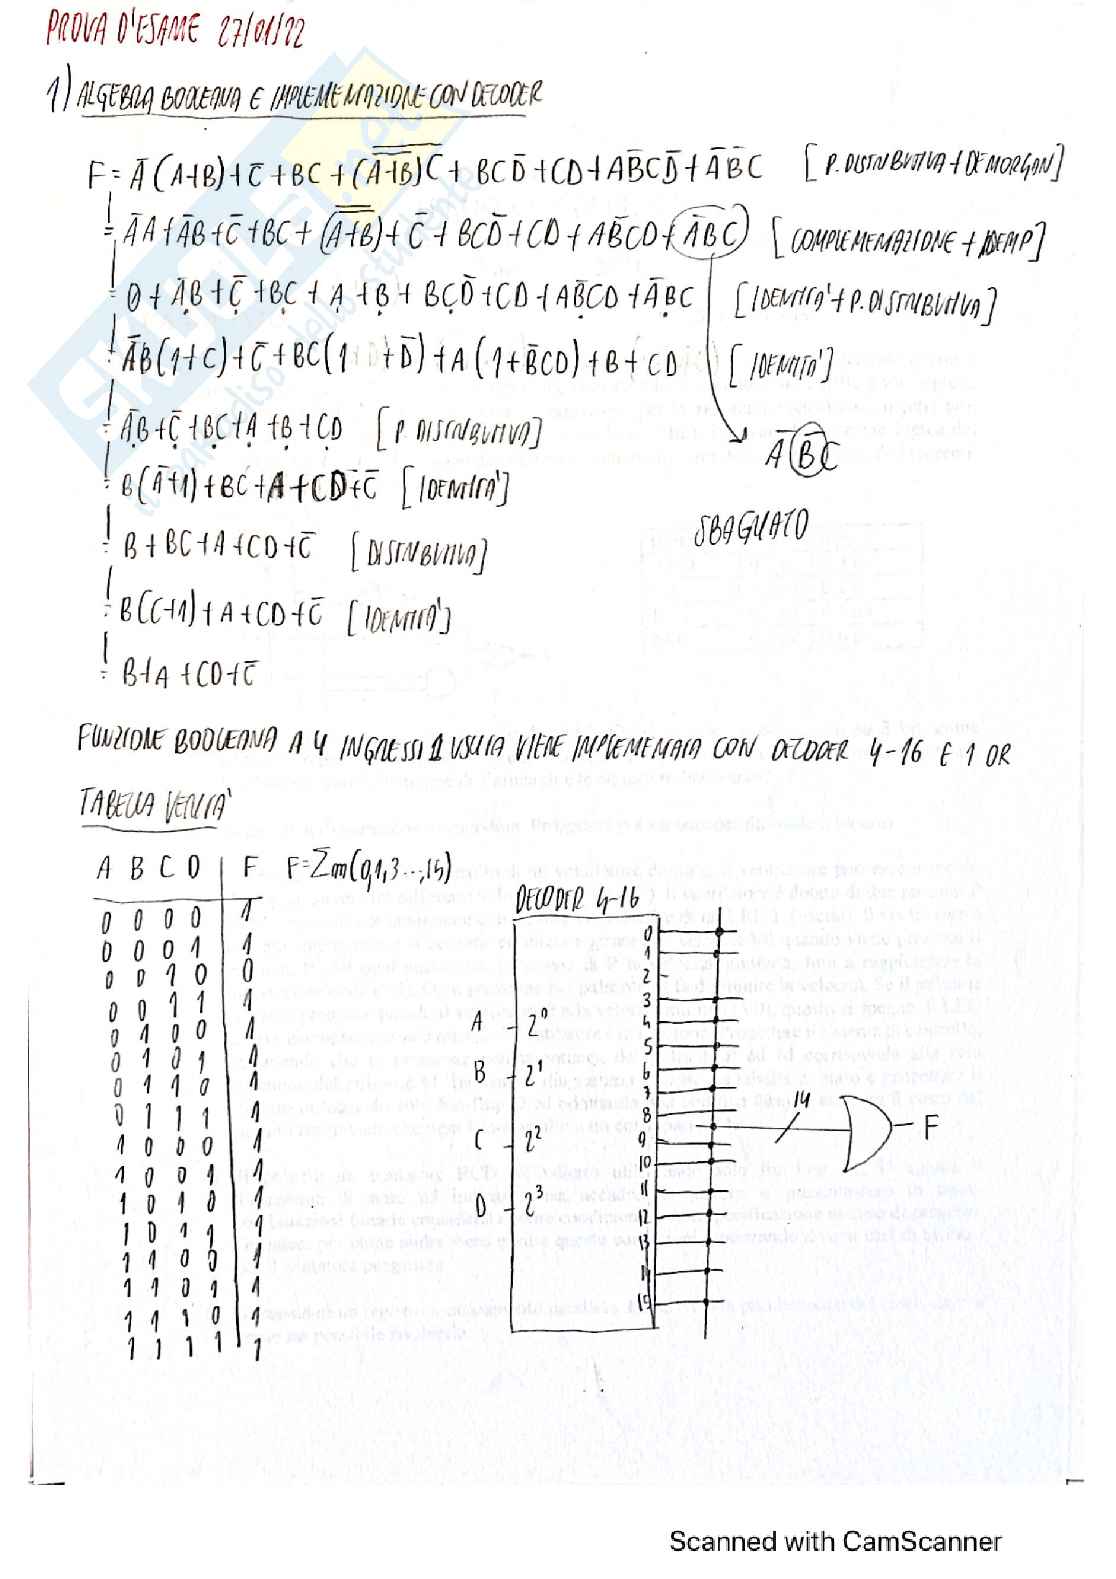 PROVA D'ESAME 27/01/22
1) ALGEBRA BOOLEANA E IMPLEMENTAZIONE CON DECODER
F = A̅(A+B)+C̅+BC+(\overline{\overline{(A+B)}C})+BCD̅+CD+AB̅CD̅+A̅B̅C [P. DISTRIBUTIVA + DE MORGAN]
= A̅A+A̅B+C̅+BC+(\overline{\overline{A+B}})+C̅+BCD̅+CD+AB̅CD+A̅BC [COMPLEMENTAZIONE + IDEMP]
= 0+A̅B+C̅+BC+A+B+BCD̅+CD+AB̅CD+A̅BC [IDENTITA' + P. DISTRIBUTIVA]
= A̅B(1+C)+C̅+BC(1+D̅)+A(1+B̅CD)+B+CD [IDENTITA']
= A̅B+C̅+BC+A+B+CD [P. DISTRIBUTIVA]
A̅B̅C
= B(A̅+1)+BC+A+CD+C̅ [IDENTITA']
SBAGLIATO
= B+BC+A+CD+C̅ [DISTRIBUTIVA]
= B(C+1)+A+CD+C̅ [IDENTITA']
= B+A+CD+C̅
FUNZIONE BOOLEANA A 4 INGRESSI 1 USCITA VIENE IMPLEMENTATA CON DECODER 4-16 E 1 OR
TABELLA VERITA'
A B C D F F=Σm(0,1,3...,15)
DECODER 4-16
0 0 0 0 1
0 0 0 1 1
0 0 1 0 0
0 0 1 1 1
0 1 0 0 1
0 1 0 1 1
0 1 1 0 1
0 1 1 1 1
1 0 0 0 1
1 0 0 1 1
1 0 1 0 1
1 0 1 1 1
1 1 0 0 1
1 1 0 1 1
1 1 1 0 1
1 1 1 1 1
A 2⁰
B 2¹
C 2²
D 2³
0
1
2
3
4
5
6
7
8
9
10
11
12
13
14
15
14
F
Scanned with CamScanner